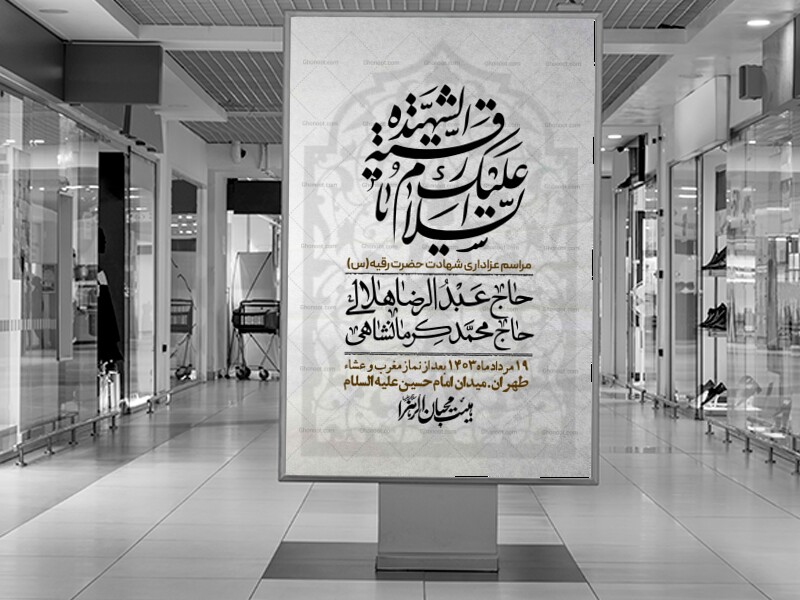 السلام علیک یا رقیة الشهیدة
مراسم عزاداری شهادت حضرت رقیه(س)
حاج عبدالرضا هلالی
حاج محمد کرمانشاهی
۱۹ مرداد ماه ۱۴۰۳ بعد از نماز مغرب و عشاء
طهران.میدان امام حسین علیه السلام
هیئت محبان الزهرا
Ghonoot.com